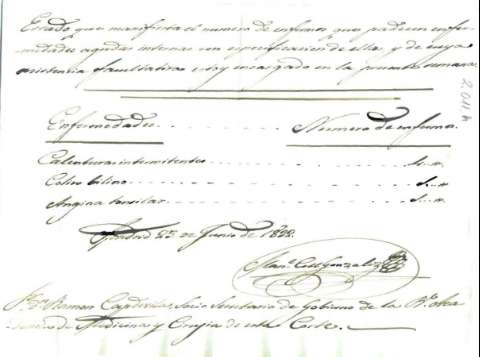 Estado que manifiesta el numero de enfermos que padecen enfer-
medades agudas internas con especificacion de ellas y de cuya
asistencia facultativa estoy encargado en la presente semana.
Enfermedades. Numero de enfermos.
Calenturas intermitentes
Colico bilioso
Angina tonsilar
Madrid 25 de Junio de
Man.l Gonzalez
Sr. Dn. Ramon Secretario de Gobierno de la Rl. Aca-
demia de Medicina y Cirujia de esta Corte.